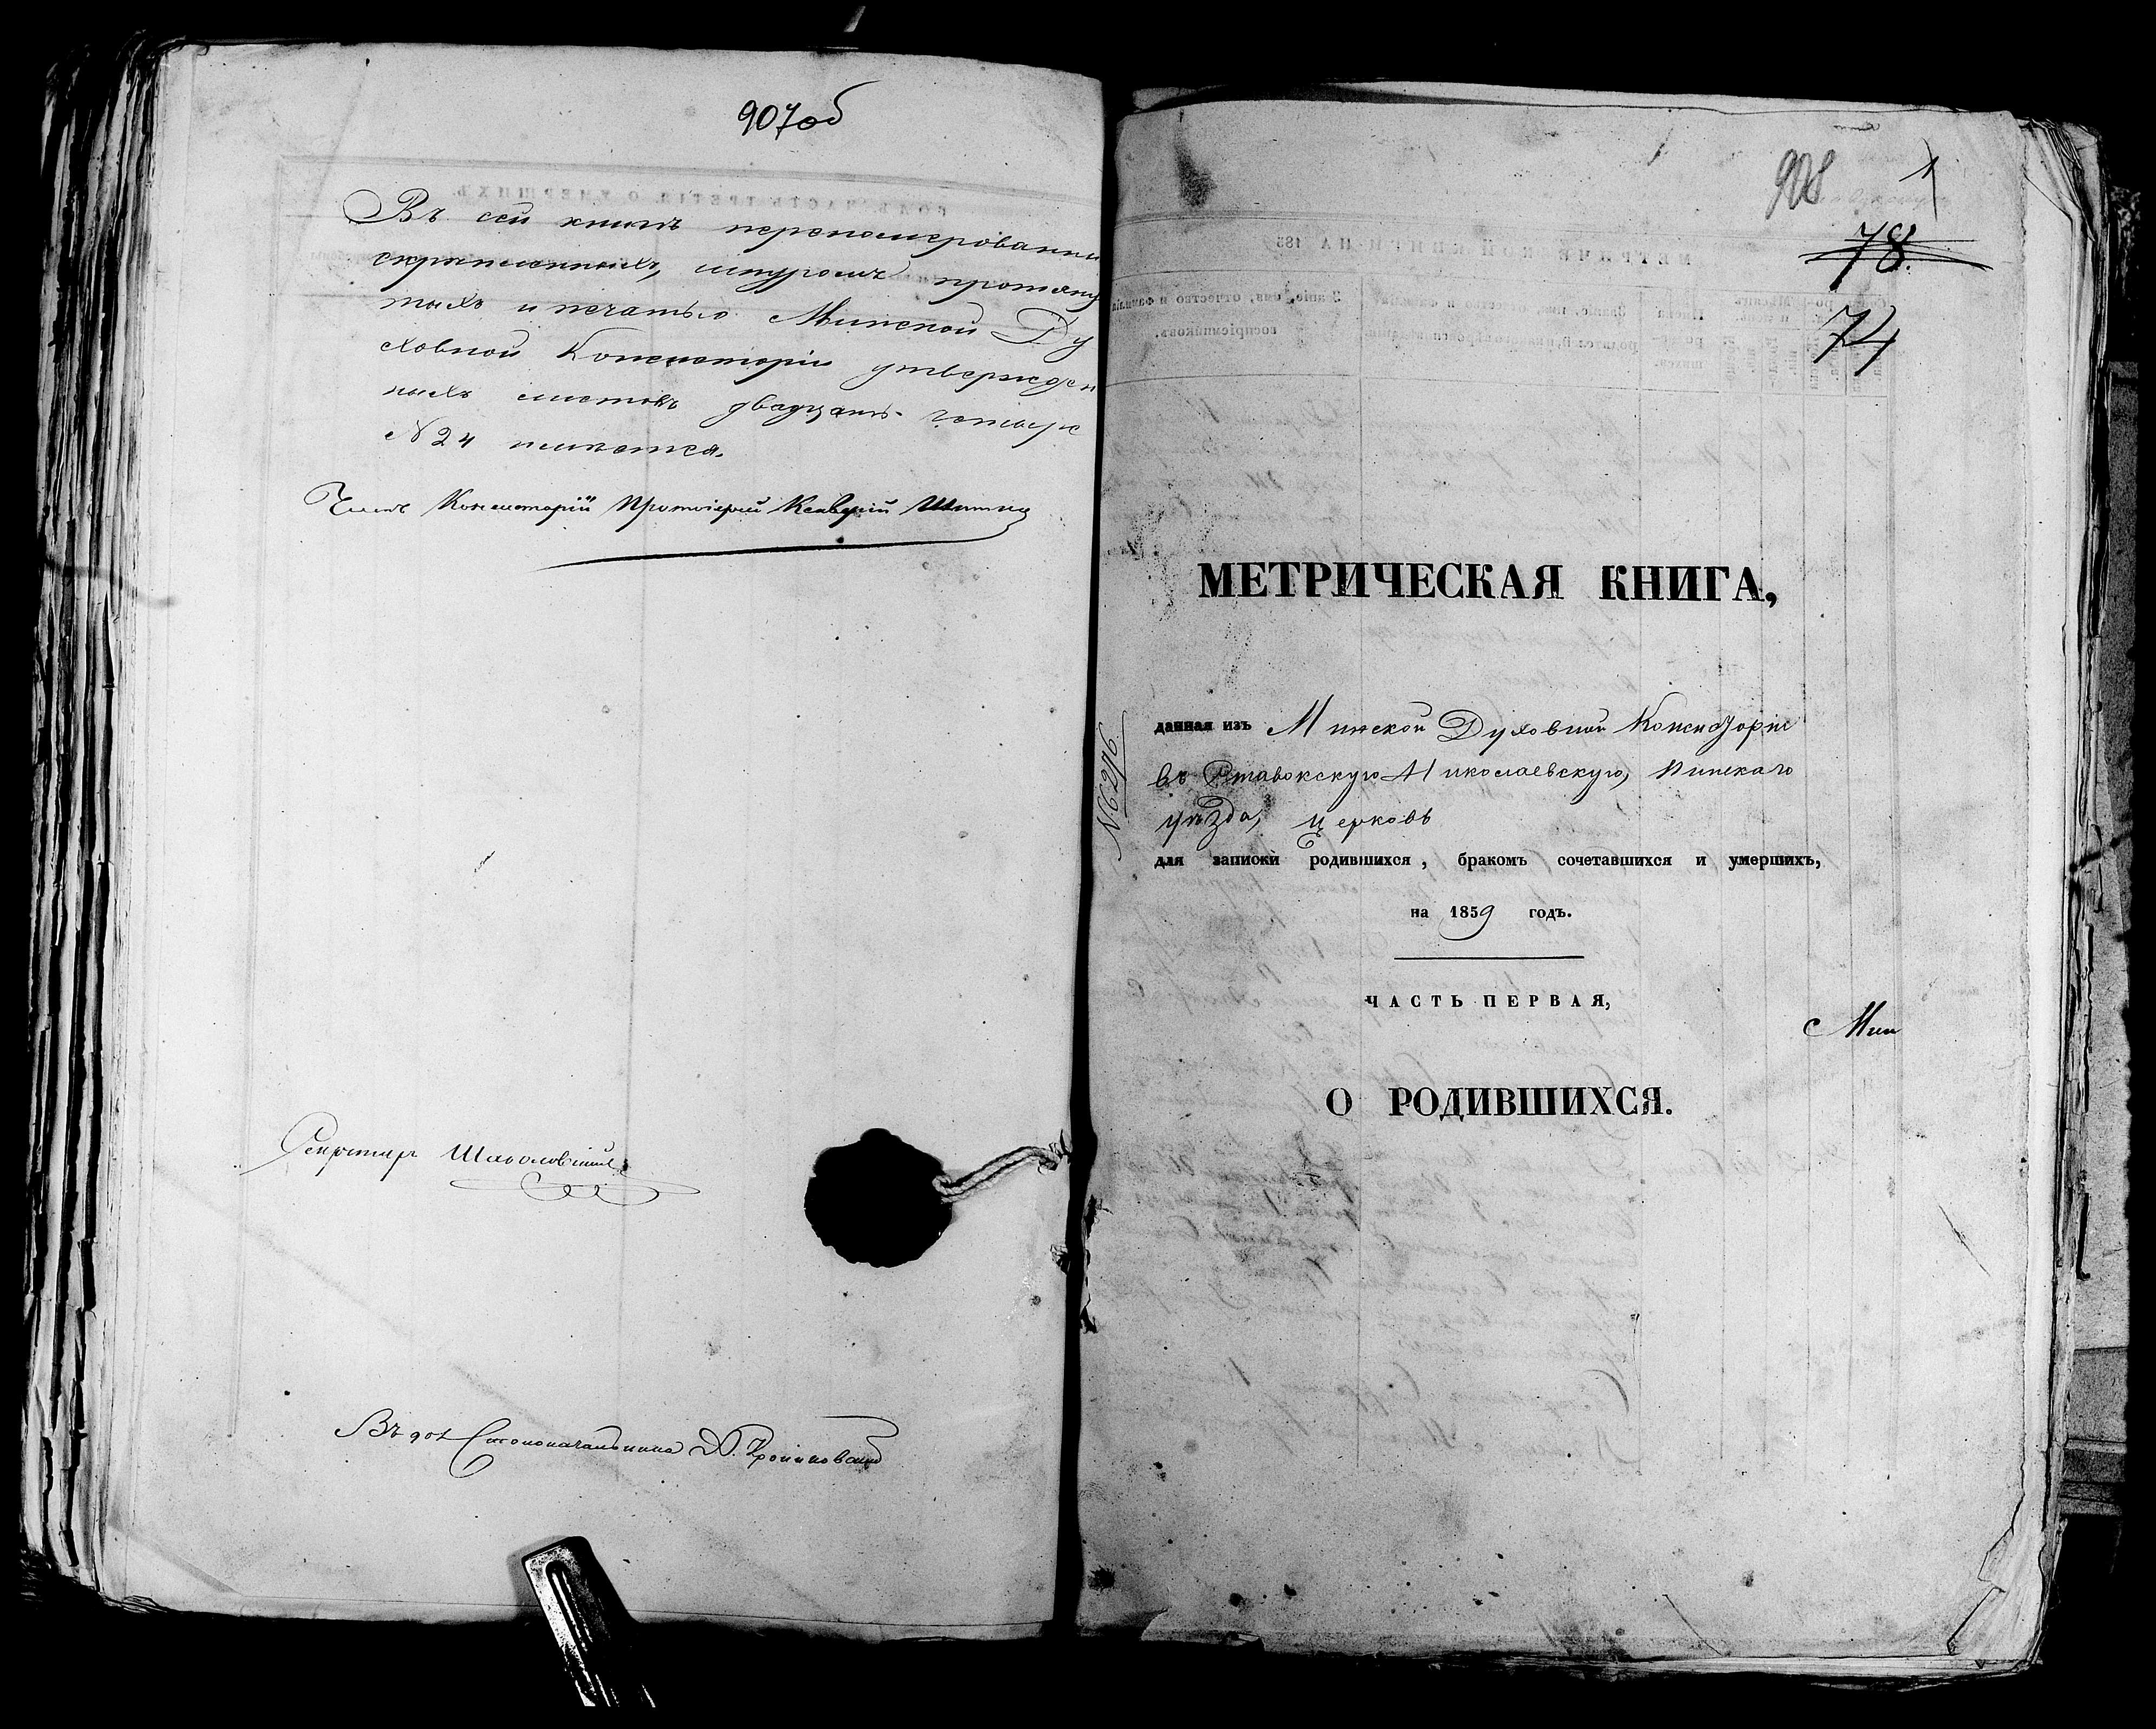 907об
Въ сей книгѣ перенумерованны
скрѣпленныхъ, шнуромъ протяну
тыхъ и печатью Минской Ду
ховной Консисторіи утвержден
ныхъ листовъ двадцать четыре
№ 24 имѣется.
Членъ Консисторіи Протоіерей
Секретарь
Въ дол Столоначальника
908
1
78.
74
МЕТРИЧЕСКАЯ КНИГА,
данная изъ Минской Духовной Консисторіи
въ Ставокскую Николаевскую, Пинскаго
уѣзда, церковь
для записки родившихся, бракомъ сочетавшихся и умершихъ,
на 1859 годъ.
ЧАСТЬ ПЕРВАЯ,
Мин
О РОДИВШИХСЯ.